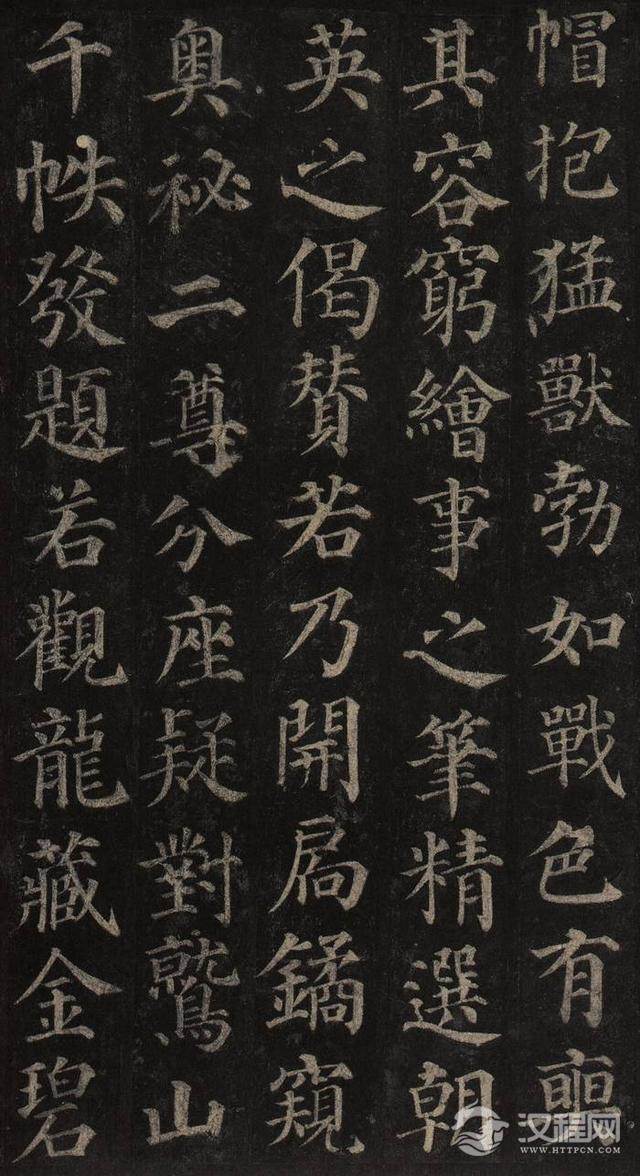 帽抱猛獸勃如戰色有奭
其容窮繪事之筆精選朝
英之偈贊若乃開扃鐍窺
奧祕二尊分座疑對鷲山
千帙發題若觀龍藏金碧
汉程网
HTTPCN.COM